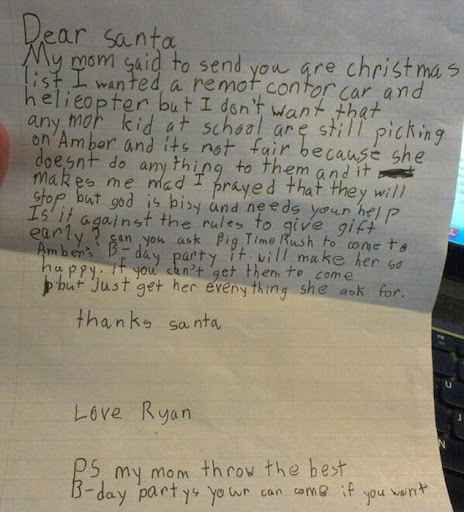 Dear santa
My mom said to send you are christmas
list. I wanted a remot contor car and
helieopter but I don't want that
any mor kid at school are still picking
on Amber and its not fair because she
doesnt do anything to them and it
makes me mad I prayed that they will
stop but god is bisy and needs your help
Is it against the rules to give gift
early? can you ask Big Time Rush to come to
Amber's B-day party it will make her so
happy. if you can't get them to come
but just get her everything she ask for.
thanks santa
Love Ryan
PS my mom throw the best
B-day partys your can come if you want
U
J
N